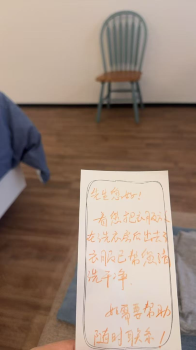 先生您好！
看您把衣服放
在洗衣房
衣服已帮您
洗干净
如需要帮助
随时可联系！